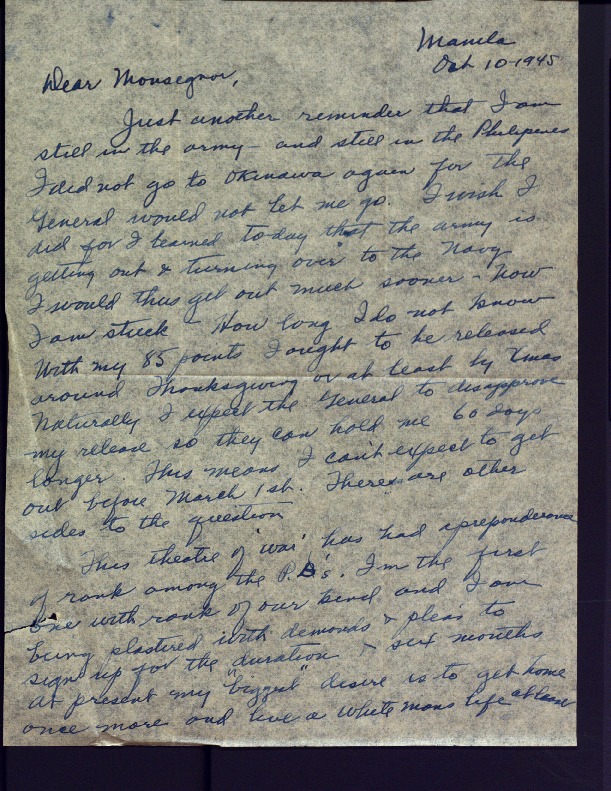 Manila
Oct 10-1945
Dear Monsegnor,
Just another reminder that I am
still in the army - and still in the Philipines
I did not go to Okinawa again for the
General would not let me go. I wish I
did for I learned to-day that the army is
getting out & turning over to the Navy
I would thus get out much sooner - Now
I am stuck - How long I do not know
With my 85 points I ought to be released
around Thanksgiving or at least by Xmas
Naturally I expect the General to disapprove
my release so they can hold me 60 days
longer. This means I can't expect to get
out before March 1st. There are other
sides to the question
This theatre of war has had a preponderance
of rank among the P. s. I'm the first
one with rank of our kind and I am
being plastered with demands & pleas to
sign up for the "duration & six months
At present my "biggest" desire is to get home
once more and live a white mans life at least